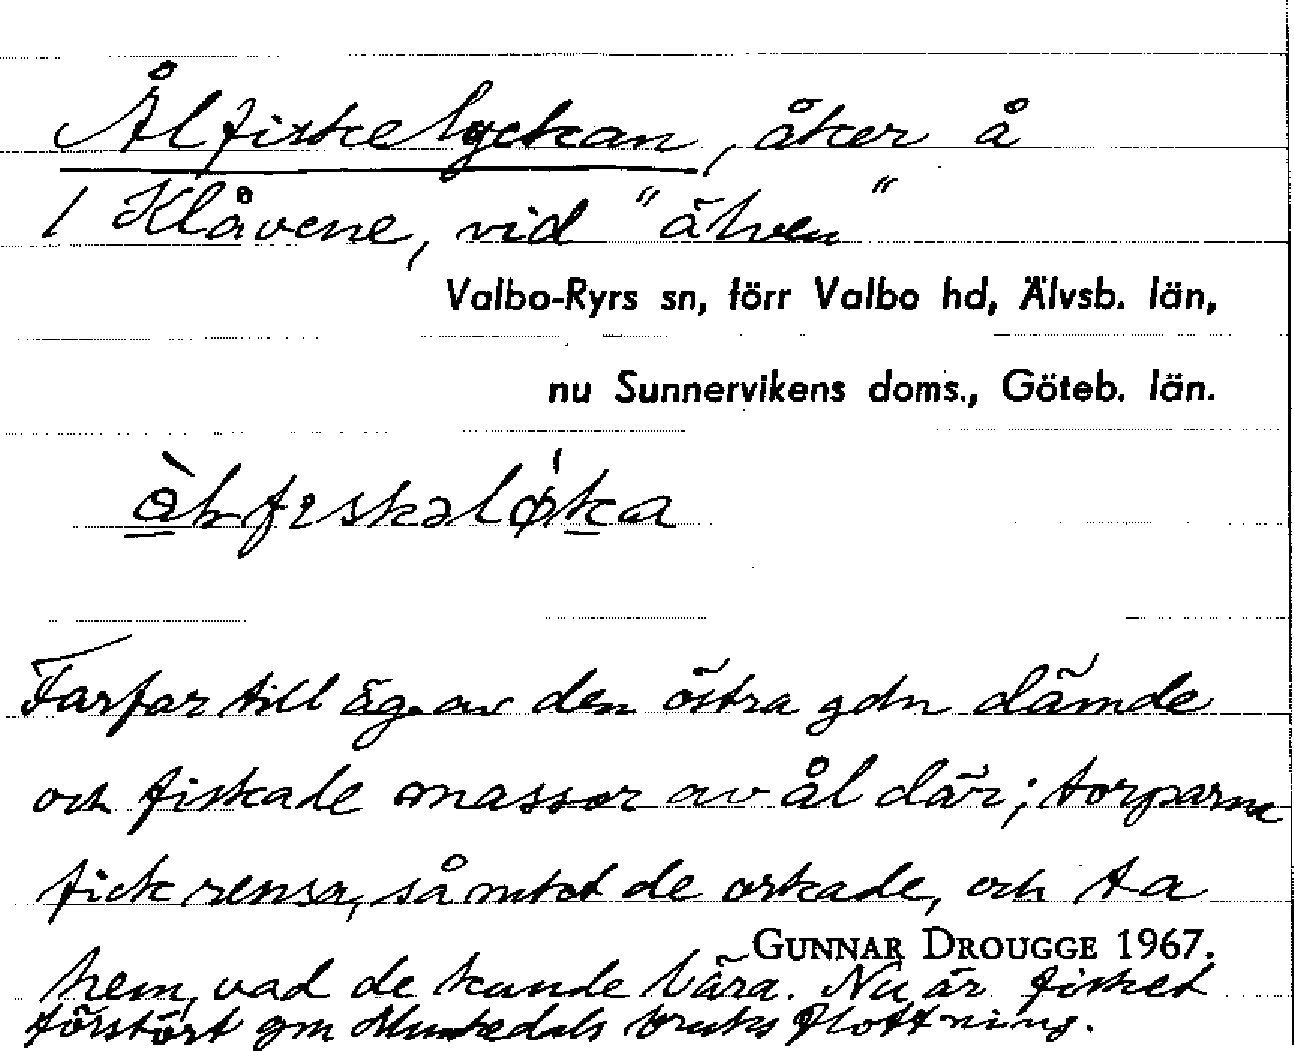 Ålfiskelyckan, åker å
1 Klåvene, vid "älven"
Valbo-Ryrs sn, förr Valbo hd, Älvsb. län,
nu Sunnervikens doms., Göteb. län.
Farfar till äg. av den östra gdn dämde
och fiskade massor av ål där; torparna
fick rensa, så mkt de orkade, och ta
GUNNAR DROUGGE 1967.
hem, vad de kunde bära. Nu är fisket
förstört gm Munkedals bruks flottning.